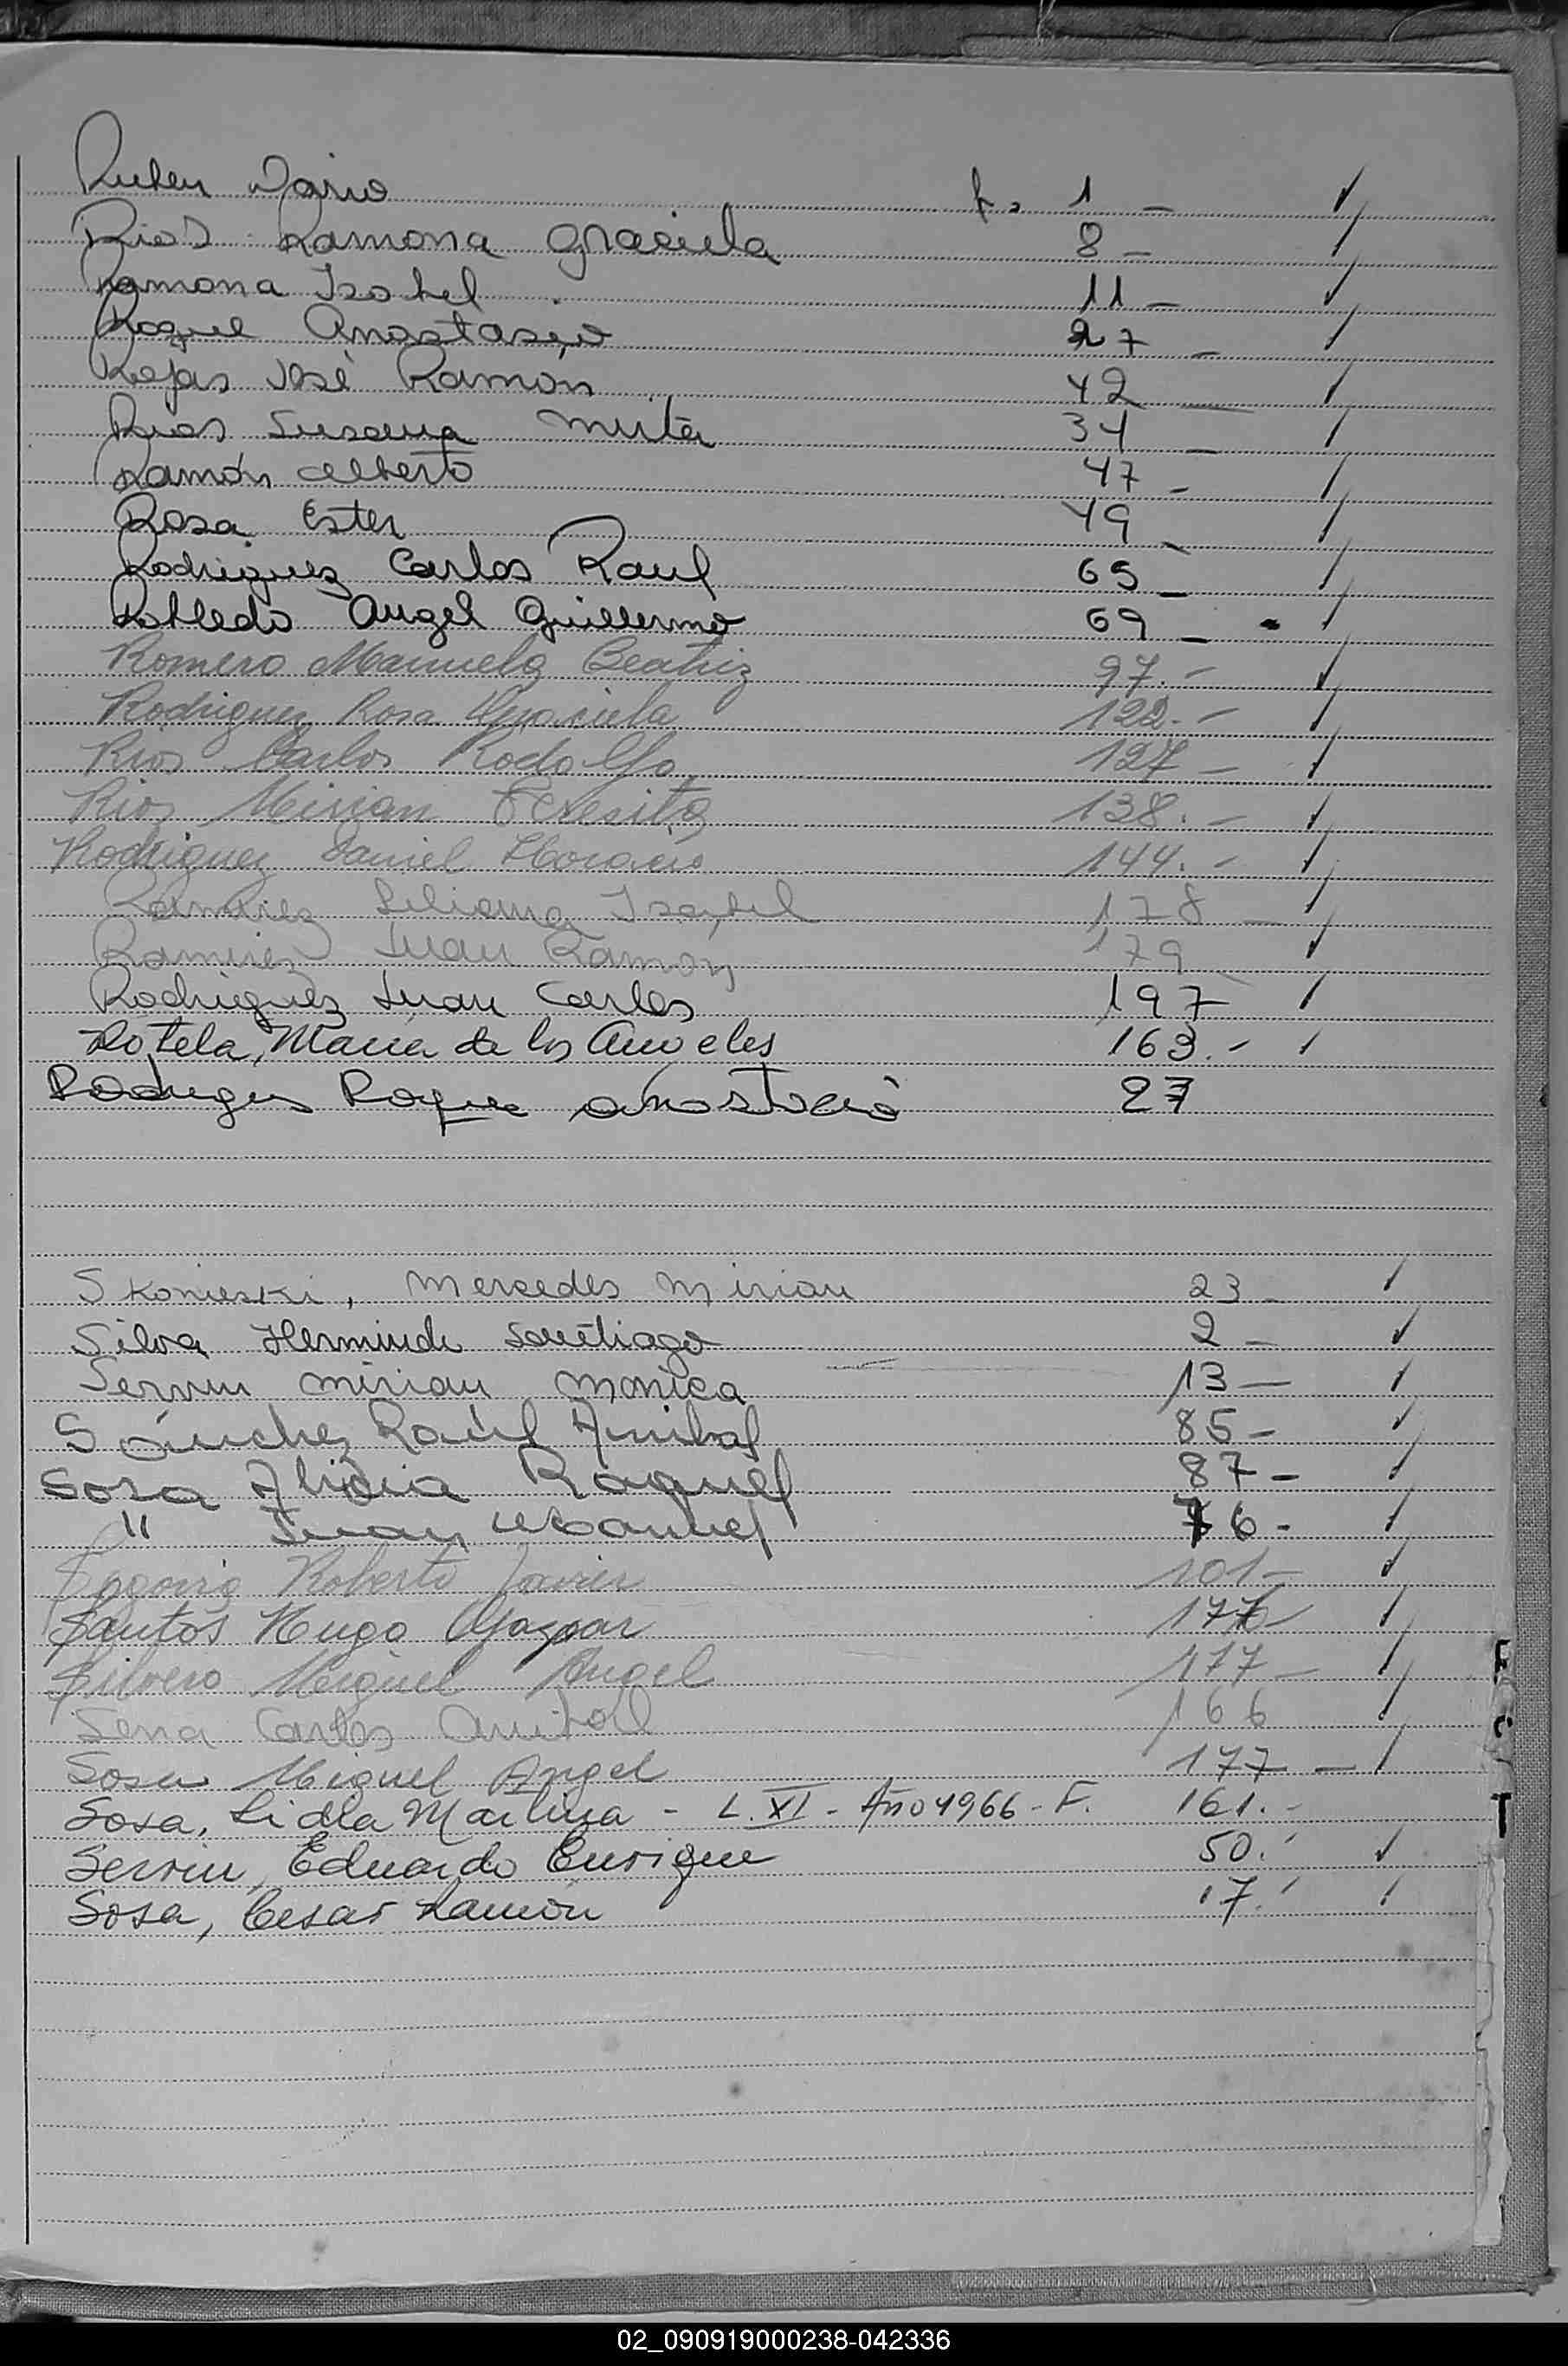 Ruben Dario f. 1 - ✓
Rios Ramona Graciela 8 - ✓
Ramona Isabel 11 - ✓
Roque Anastacio 27 - ✓
Rojas José Ramon 42 - ✓
Rios Susana Mirta 34 - ✓
Ramón Alberto 47 - ✓
Rosa Ester 49 - ✓
Rodriguez Carlos Raul 65 - ✓
Robledo Angel Guillermo 69 - ✓
Romero Manuela Beatriz 97.- ✓
Rodriguez Rosa Graciela 122.- ✓
Rios Carlos Rodolfo 127 - ✓
Rios Mirian Teresita 138.- ✓
Rodriguez Daniel Horacio 144.- ✓
Ramirez Liliana Isabel 178 - ✓
Ramirez Juan Ramon 179 ✓
Rodriguez Juan Carlos 197 ✓
Rotela, Maria de los Angeles 163.- ✓
Rodrigues Roque Anastacio 27
Skonieski, Mercedes Mirian 23 - ✓
Silva Herminda Santiago 2 - ✓
Servin Mirian Monica 13 - ✓
Sánchez Raúl Anibal 85 - ✓
Sosa Alidia Raquel 87 - ✓
" Juan Manuel 76 - ✓
Roberto Javier 101 - ✓
Santos Hugo Gaspar ✓
Silvero Miguel Angel 117 - ✓
Sena Carlos Anibal 166 ✓
Sosa Miguel Angel 177 - ✓
Sosa, Lidia Martina - L. XI - Año 1966 - F. 161.-
Servin, Eduardo Enrique 50.- ✓
Sosa, Cesar Ramón 17.- ✓
F
C
T
02_090919000238-042336